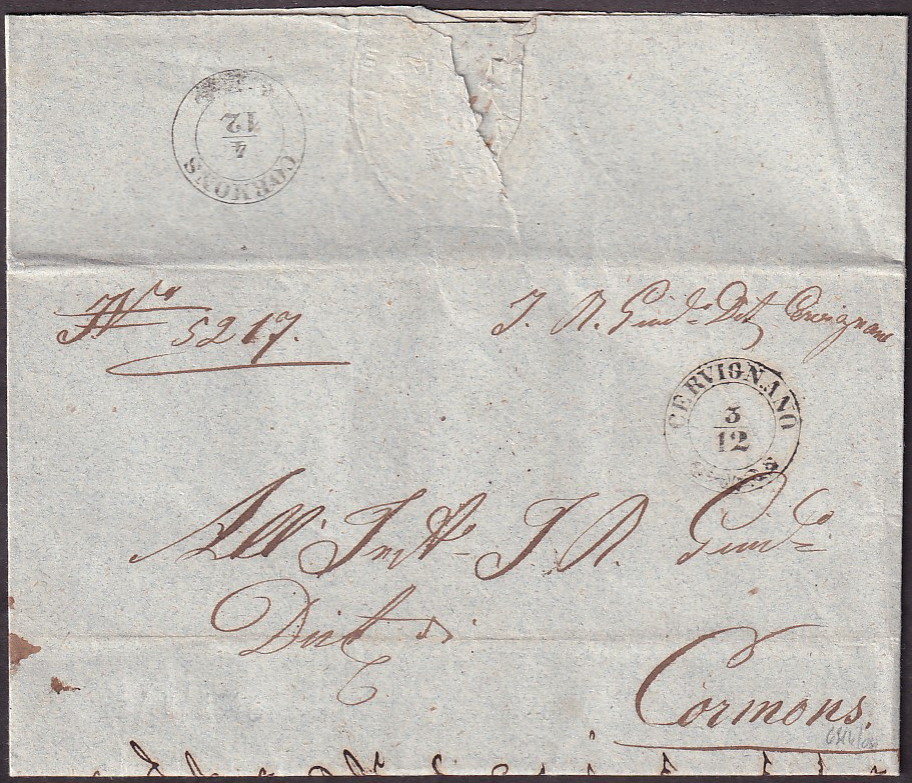 CORMONS
4
12
Nro
5217.
I. R. Giudo Dist Cervignano
CERVIGNANO
3
12
All' Inclto I R Giudo
Distle di
Cormons.